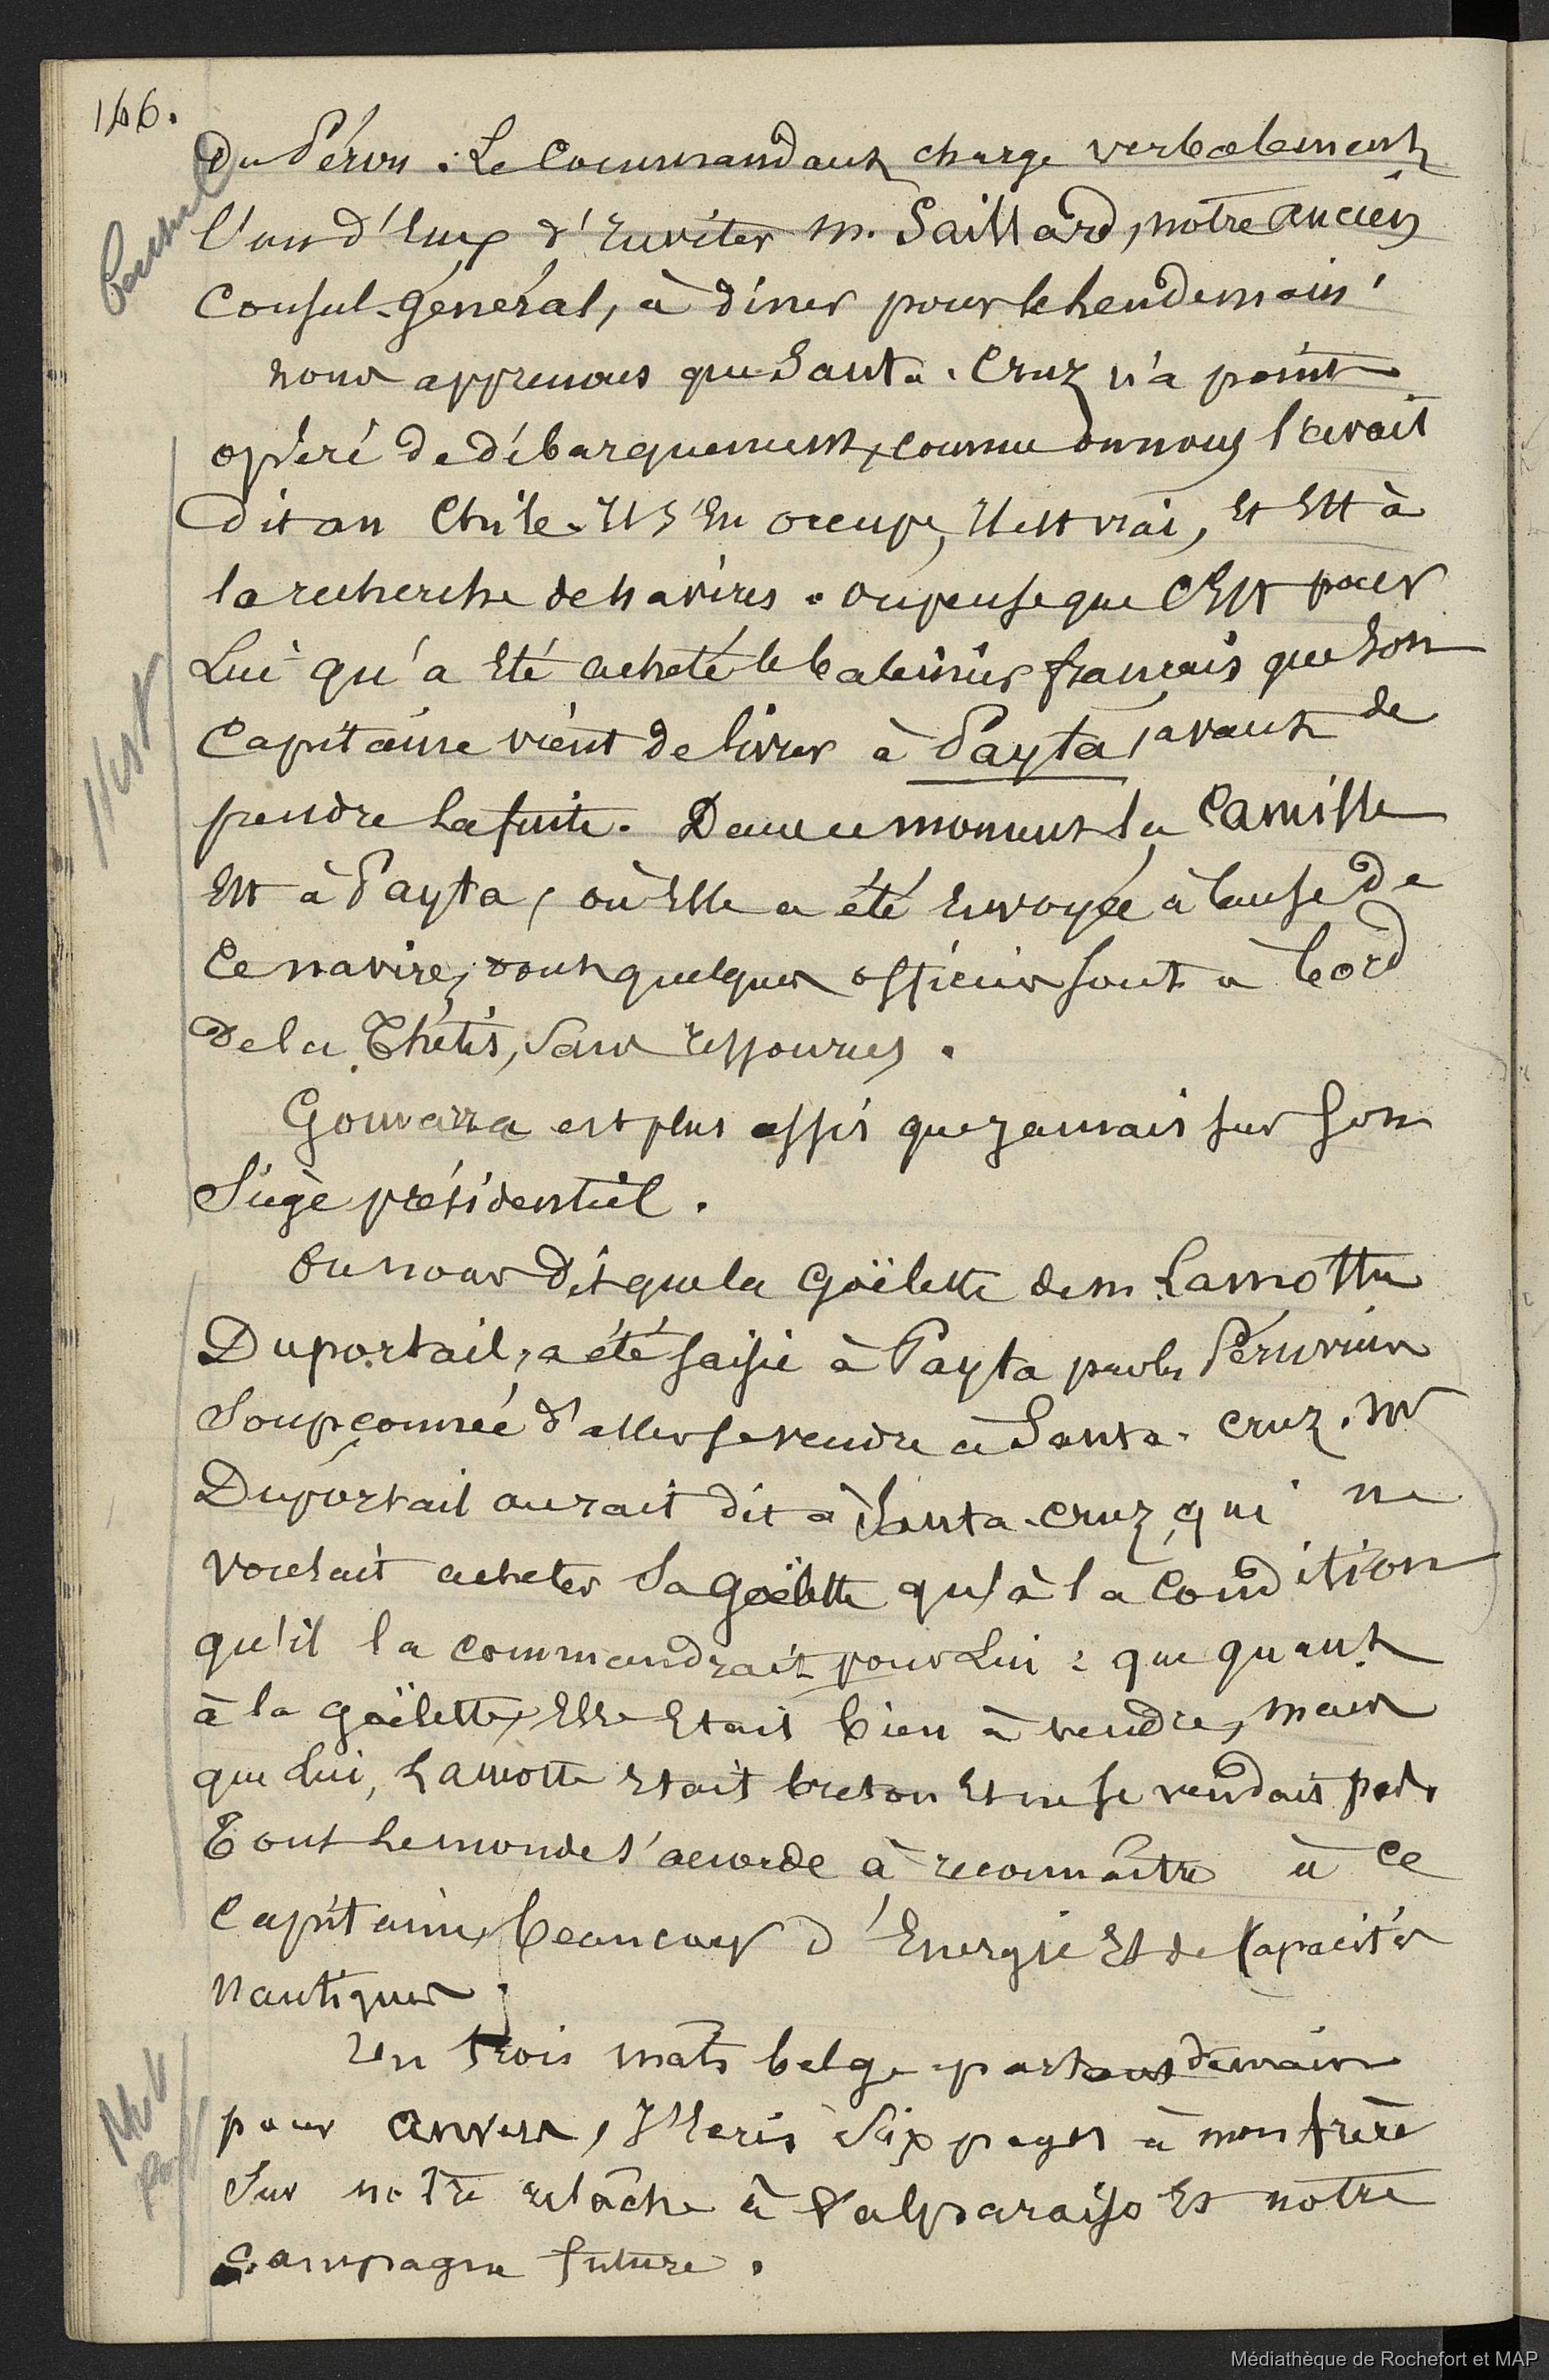 146.
du Pérou. Le Commandant charge verbalement
l'un d'Eux d'Inviter M. Saillard, notre ancien
Consul-général, à dîner pour le lendemain.
nous apprenons que Santa-Cruz n'a point
opéré de débarquement, comme on nous l'avait
dit au Chile. Il s'En occupe, Il est vrai, Et Est à
la recherche de navires. on pense que C'Est pour
Lui qu'a Eté acheté le baleinier français que son
Capitaine vient de livrer à Payta, avant de
prendre la fuite. Dans ce moment la Camille
Est à Payta, où Elle a été Envoyée à Cause de
Ce navire, dont quelques officiers sont à bord
de la Thétis, sans ressources.
Gamarra est plus assis que jamais sur son
Siège présidentiel.
On nous dit que la Goëlette de m. Lamotte
Duportail, a été saisie à Payta par les Péruviens
Soupçonnée d'aller se vendre à Santa-Cruz. Mr
Duportail aurait dit à Santa-Cruz, qui ne
voulait acheter sa Goëlette qu'à la Condition
qu'il la commandrait pour Lui : que quant
à la goëlette, Elle Etait bien à vendre, mais
que Lui, Lamotte Etait breton Et ne se vendait pas.
Tout le monde s'accorde à reconnaître à Ce
Capitaine, beaucoup d'Energie Et de Capacités
Nautiques.
Un trois mâts belge partant demain
pour Anvers, J'Ecris Six pages à mon frère
Sur notre relâche à Valparaiso Et notre
Campagne future.
Hist
Médiathèque de Rochefort et MAP